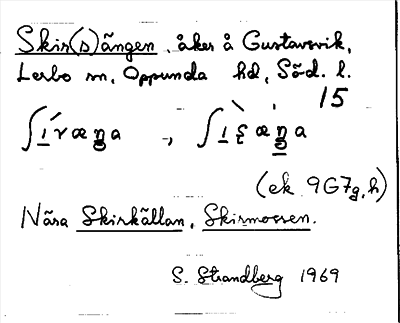 Skir(s)ängen, åker å Gustavsvik,
Lerbo sn, Oppunda hd, Söd. l.
15
(ek 9G7g, h)
Nära Skirkällan, Skirmossen.
S. Strandberg 1969